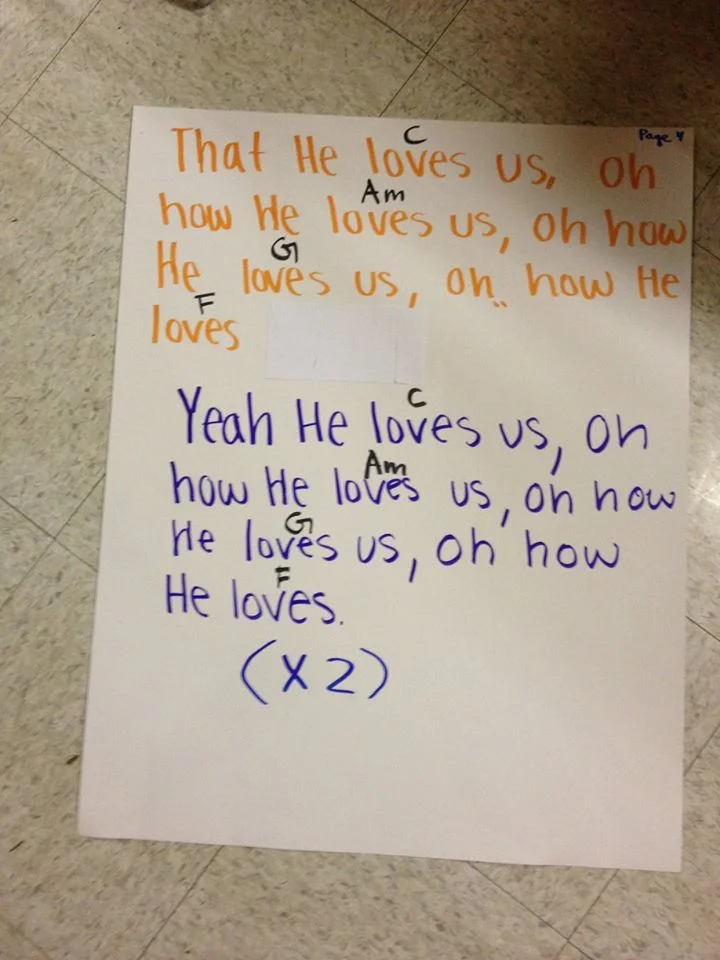 Page 4
C
That He loves us, oh
Am
how He loves us, oh how
G
He loves us, oh how He
F
loves
C
Yeah He loves us, oh
Am
how He loves us, oh how
G
He loves us, oh how
F
He loves.
(X2)